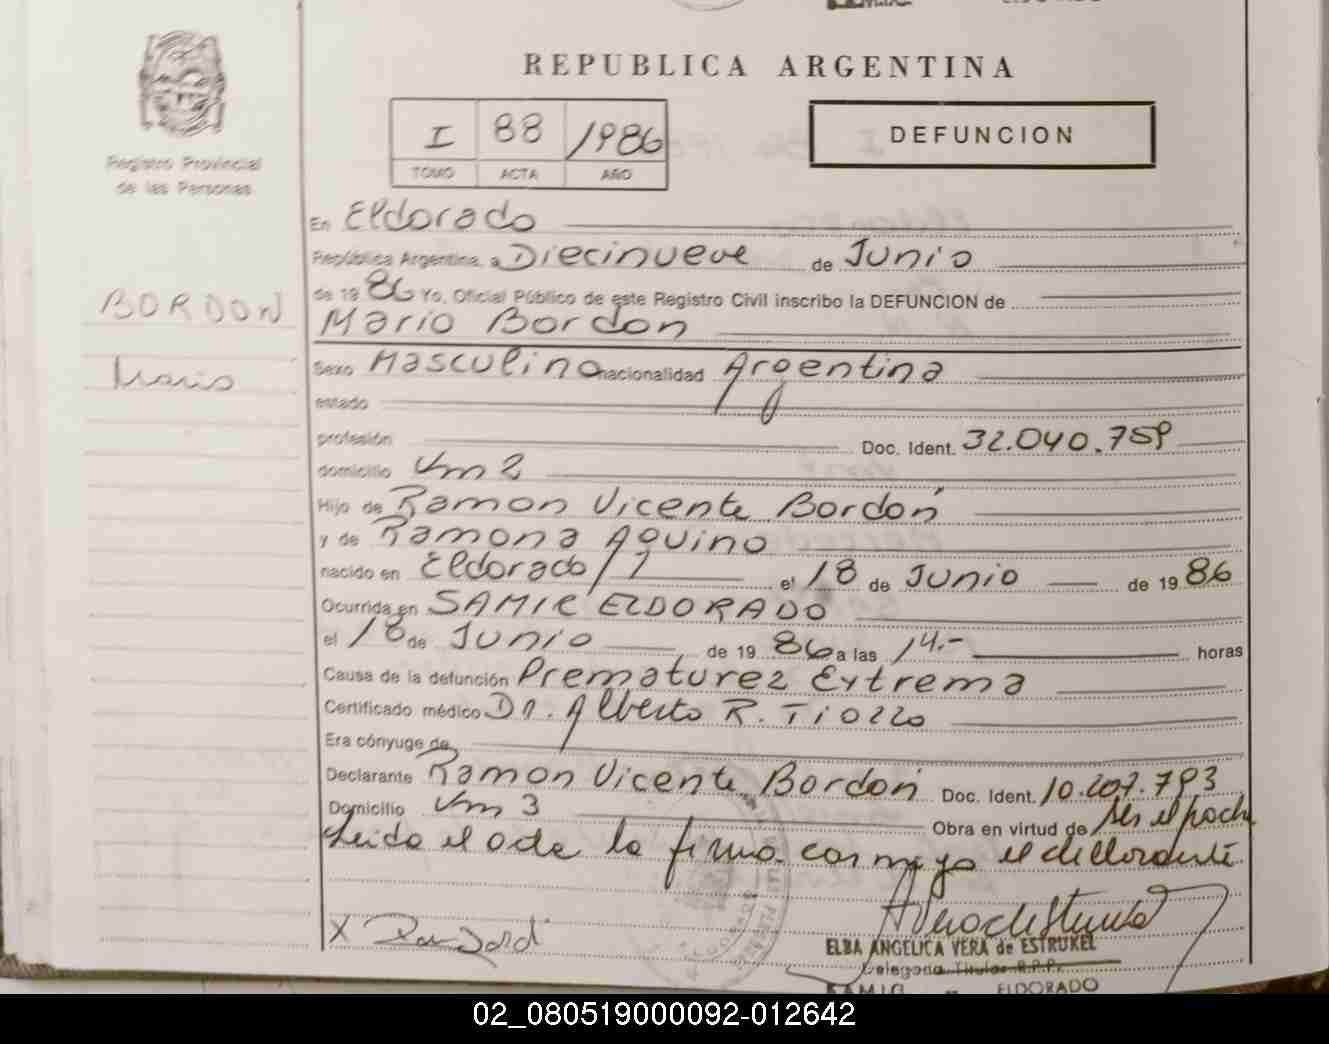 REPUBLICA ARGENTINA
I 88 1986
TOMO ACTA AÑO
DEFUNCION
Registro Provincial
de las Personas
BORDON
Mario
En Eldorado
República Argentina, a Diecinueve de Junio
de 19 86 Yo, Oficial Público de este Registro Civil inscribo la DEFUNCION de
Mario Bordon
Sexo Masculino nacionalidad Argentina
estado
profesión Doc. Ident. 32.040.759
domicilio Km 2
Hijo de Ramon Vicente Bordón
y de Ramona Aquino
nacido en Eldorado el 18 de Junio de 19 86
Ocurrida en SAMIC ELDORADO
el 18 de Junio de 19 86 a las 14.- horas
Causa de la defunción Prematurez Extrema
Certificado médico Dr. Alberto R. Tiozzo
Era cónyuge de
Declarante Ramon Vicente Bordón Doc. Ident. 10.207.793
Domicilio Km 3
Obra en virtud de ser el padre
Leida el acta la firma conmigo el declarante
X
ELBA ANGELICA VERA de ESTRUKEL
Delegada Titular R.P.P.
SAMIC ELDORADO
02_080519000092-012642